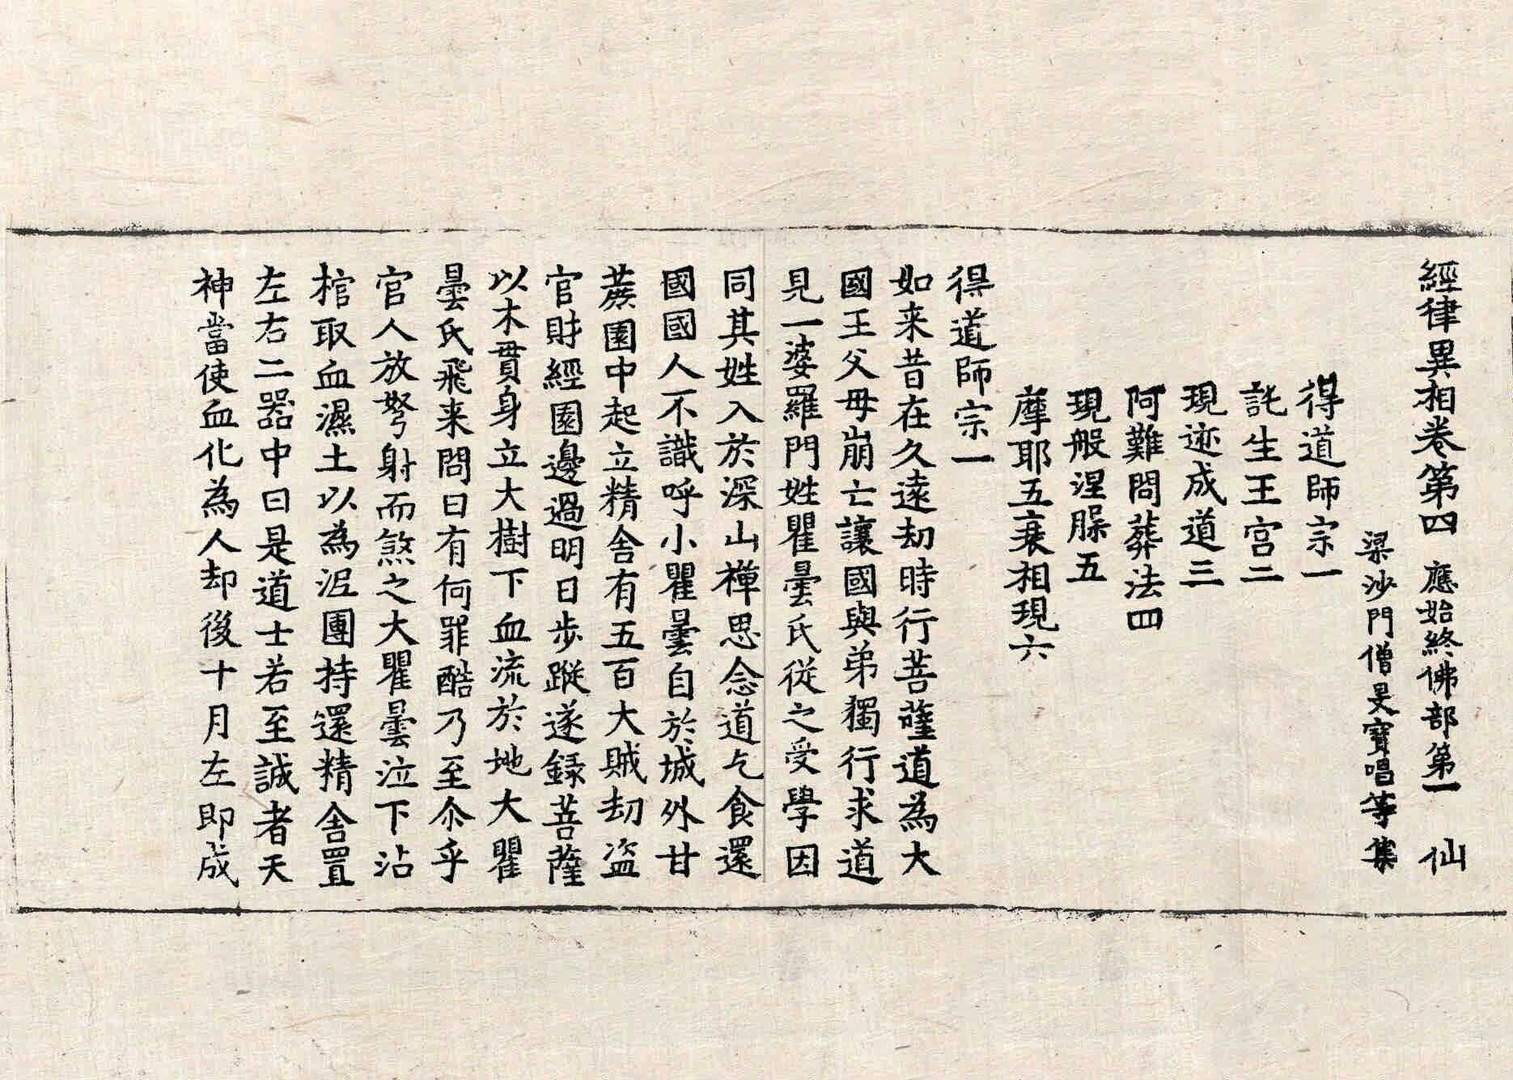 經律異相卷第四 應始終佛部第一 仙
梁沙門僧旻寶唱等集
得道師宗一
託生王宮二
現迹成道三
阿難問葬法四
現般涅腂五
摩耶五衰相現六
得道師宗一
如来昔在久遠劫時行菩薩道為大
國王父母崩亡讓國與弟獨行求道
見一婆羅門姓瞿曇氏從之受學因
同其姓入於深山禪思念道乞食還
國國人不識呼小瞿曇自於城外甘
蔗園中起立精舍有五百大賊劫盜
官財經園邊過明日步蹤遂録菩薩
以木貫身立大樹下血流於地大瞿
曇氏飛来問曰有何罪酷乃至尒乎
官人放弩射而煞之大瞿曇泣下沾
棺取血濕土以為泥團持還精舍置
左右二器中曰是道士若至誠者天
神當使血化為人却後十月左即成